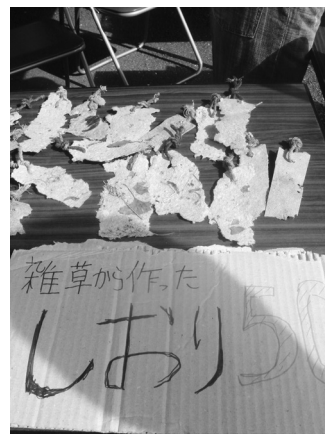 雑草から作った
しおり 50